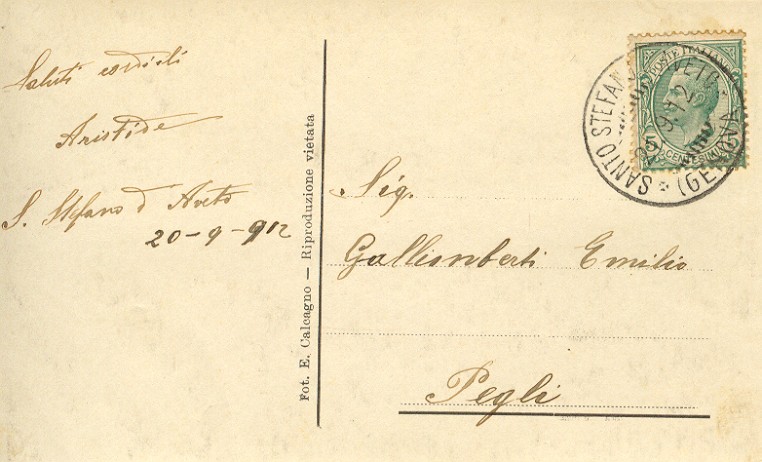 Saluti cordiali
Aristide
S. Stefano d Aveto
20-9-912
Fot. E. Calcagno — Riproduzione vietata
POSTE ITALIANE
CENTESIMI
SANTO STEFANO D'AVETO
20.9.12
(GENOVA)
Sig.
Gallianberti Emilio
Pegli